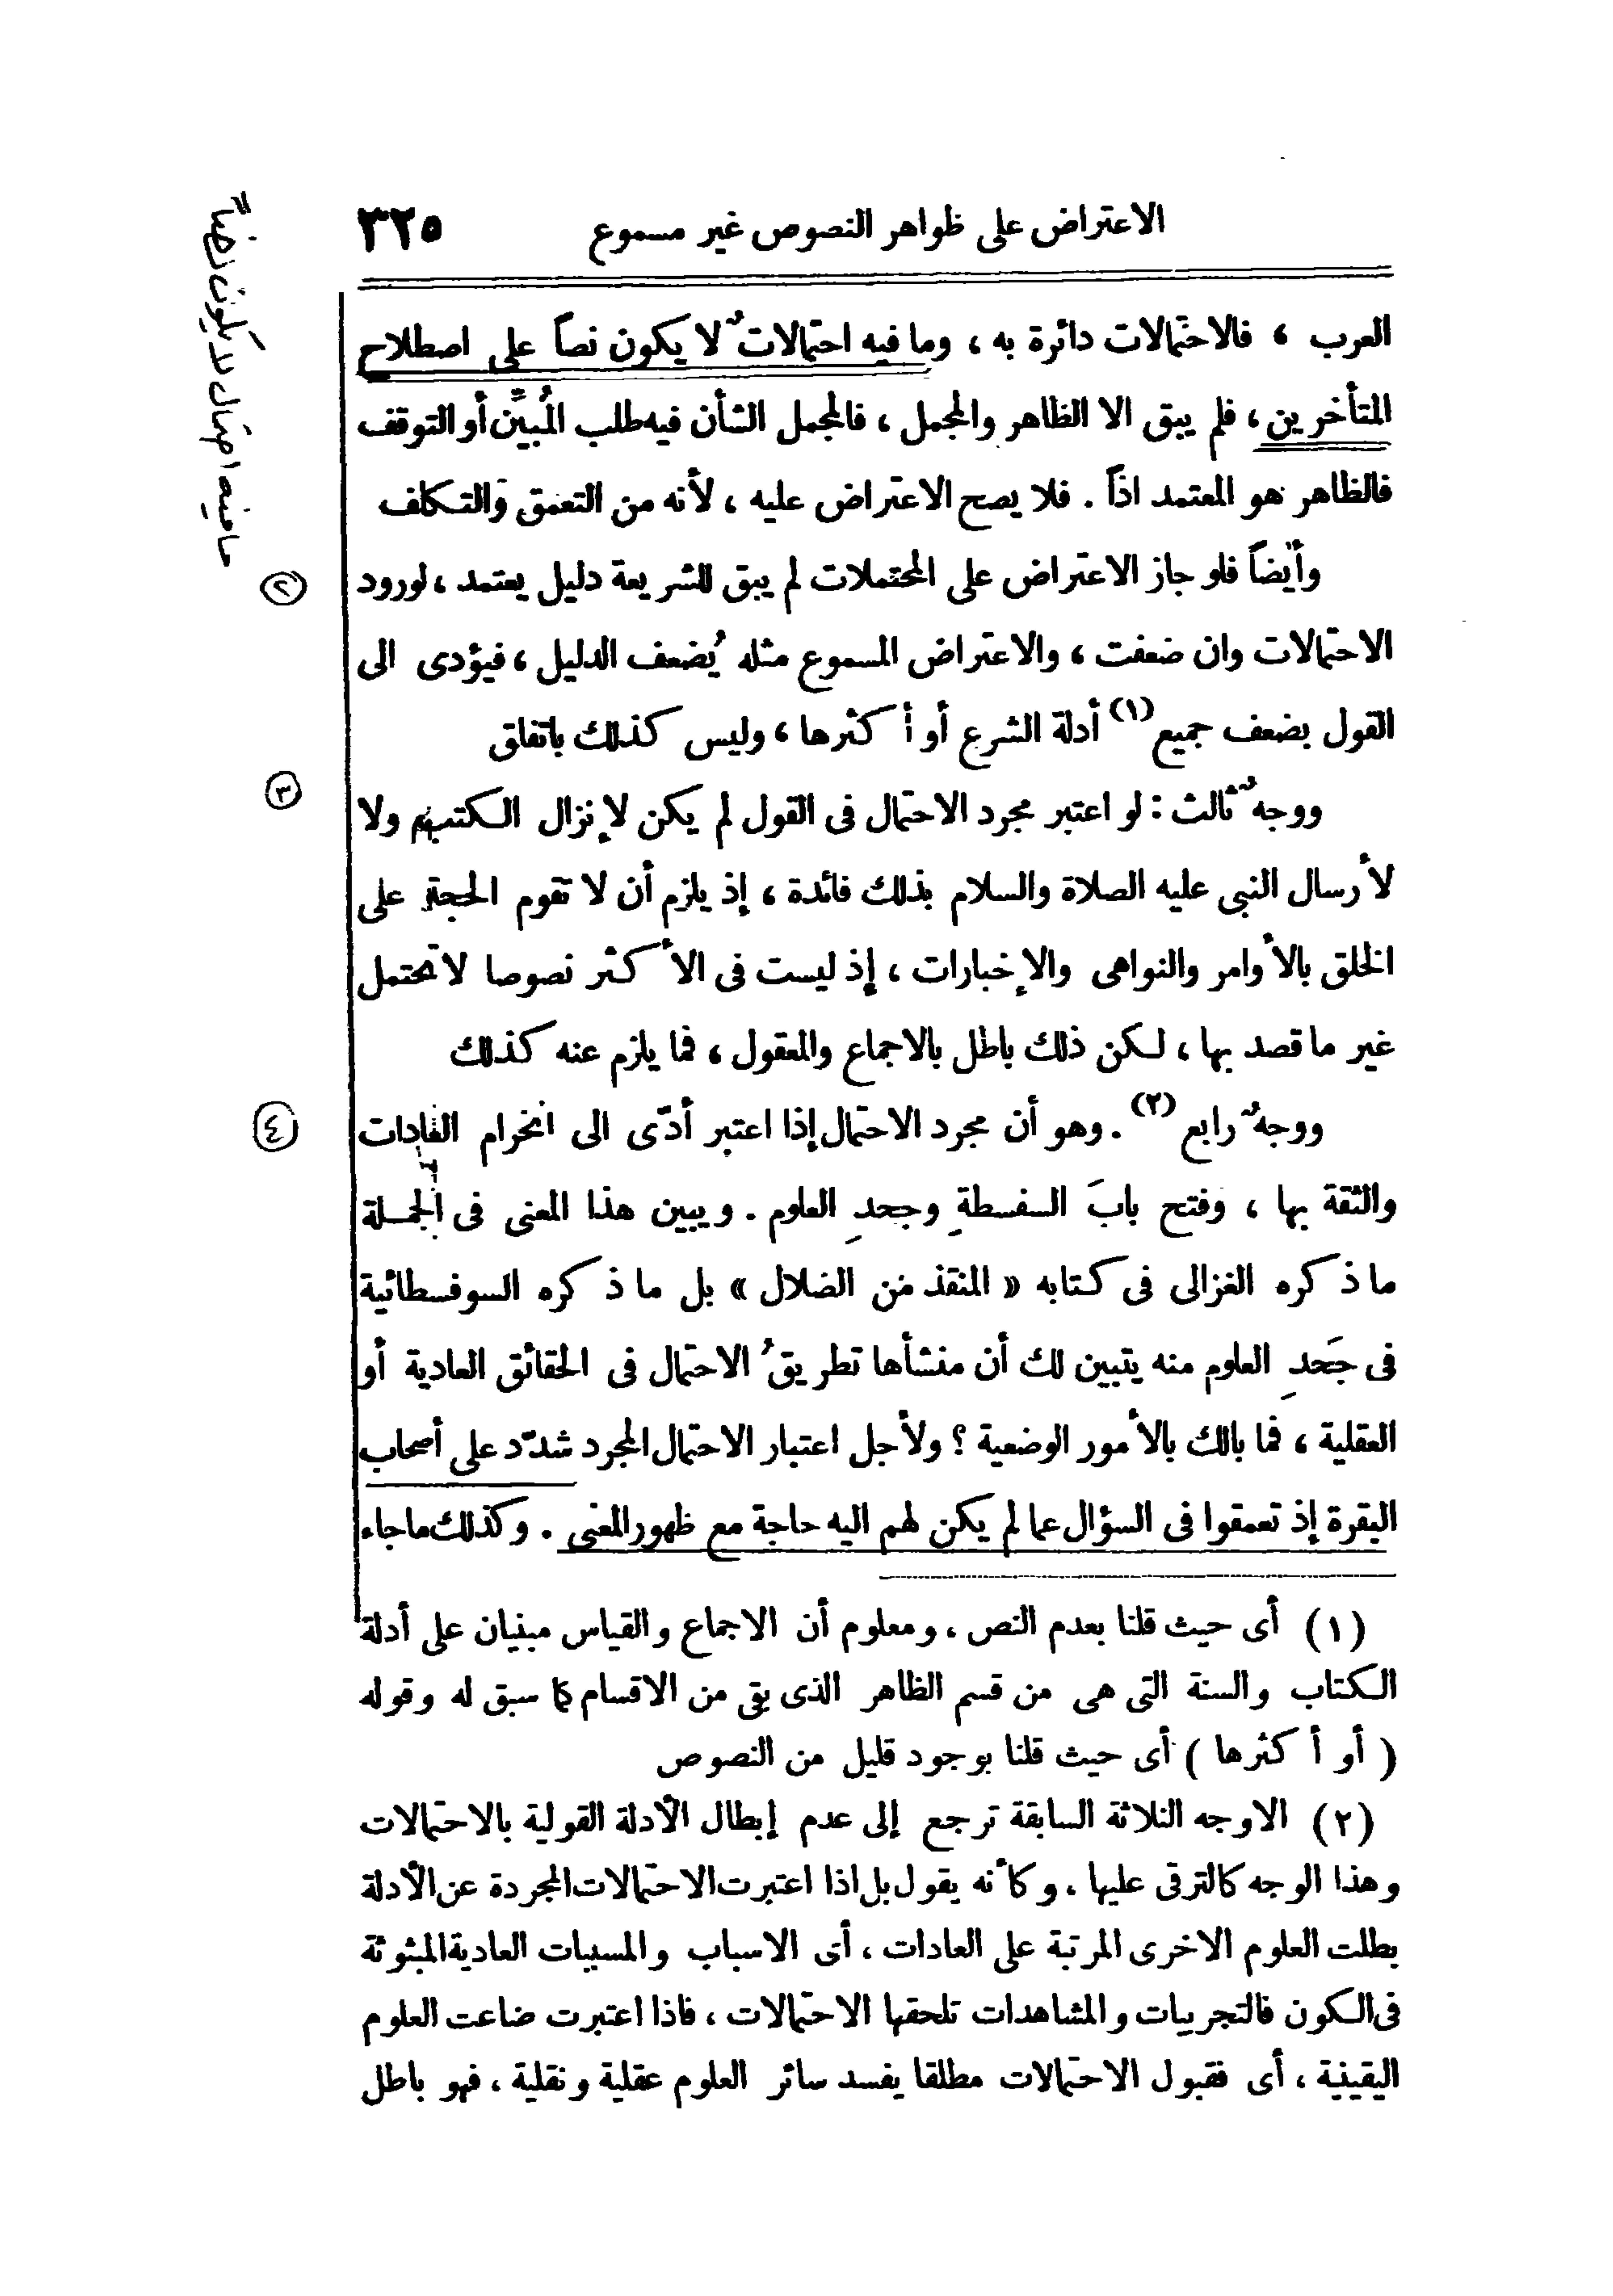 الاعتراض على ظواهر النصوص غير مسموع ٣٢٥
العرب ، فالاحتمالات دائرة به ، وما فيه احتمالاتٌ لا يكون نصاً على اصطلاح
المتأخرين ، فلم يبق الا الظاهر والمجمل ، فالمجمل الشأن فيه طلب المُبيِّن أو التوقف
فالظاهر هو المعتمد اذاً . فلا يصح الاعتراض عليه ، لأنه من التعمق والتكلف
وأيضاً فلو جاز الاعتراض على المحتملات لم يبق للشريعة دليل يعتمد ، لورود
٢
الاحتمالات وان ضعفت ، والاعتراض المسموع مثله يُضعف الدليل ، فيؤدى الى
القول بضعف جميع (١) أدلة الشرع أو أكثرها ، وليس كذلك باتفاق
ووجهٌ ثالث : لو اعتبر مجرد الاحتمال فى القول لم يكن لإنزال الكتب ولا
٣
لأرسال النبى عليه الصلاة والسلام بذلك فائدة ، إذ يلزم أن لا تقوم الحجة على
الخلق بالأوامر والنواهى والإخبارات ، إذ ليست فى الأكثر نصوصا لا تحتمل
غير ما قصد بها ، لكن ذلك باطل بالاجماع والمعقول ، فما يلزم عنه كذلك
ووجهٌ رابع (٢) . وهو أن مجرد الاحتمال إذا اعتبر أدّى الى انخرام العادات
٤
والثقة بها ، وفتح بابَ السفسطةِ وجحدِ العلوم . ويبين هذا المعنى فى الجملة
ما ذكره الغزالى فى كتابه « المنقذ من الضلال » بل ما ذكره السوفسطائية
فى جَحدِ العلوم منه يتبين لك أن منشأها تطريقُ الاحتمال فى الحقائق العادية أو
العقلية ، فما بالك بالأمور الوضعية ؟ ولأجل اعتبار الاحتمال المجرد شدّد على أصحاب
البقرة إذ تعمقوا فى السؤال عما لم يكن لهم اليه حاجة مع ظهور المعنى . وكذلك ما جاء
(١) أى حيث قلنا بعدم النص ، ومعلوم أن الاجماع والقياس مبنيان على أدلة
الكتاب والسنة التى هى من قسم الظاهر الذى بقى من الاقسام كما سبق له وقوله
( أو أكثرها ) أى حيث قلنا بوجود قليل من النصوص
(٢) الاوجه الثلاثة السابقة ترجع إلى عدم إبطال الأدلة القولية بالاحتمالات
وهذا الوجه كالترقى عليها ، وكأنه يقول بل اذا اعتبرت الاحتمالات المجردة عن الأدلة
بطلت العلوم الاخرى المرتبة على العادات ، أى الاسباب والمسببات العادية المبثوثة
فى الكون فالتجريبات والمشاهدات تلحقها الاحتمالات ، فاذا اعتبرت ضاعت العلوم
اليقينية ، أى فقبول الاحتمالات مطلقا يفسد سائر العلوم عقلية ونقلية ، فهو باطل
ما فيه احتمال لا يكون نصاً